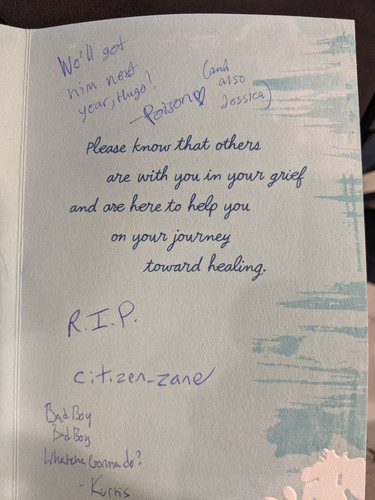 We'll get
him next
year, Hugo!
-Poison♡
(and
also
Jessica)
Please know that others
are with you in your grief
and are here to help you
on your journey
toward healing.
R.I.P.
citizen_zane
Bad Boy
Bad Boy
Whatcha Gonna do?
- Kurtis